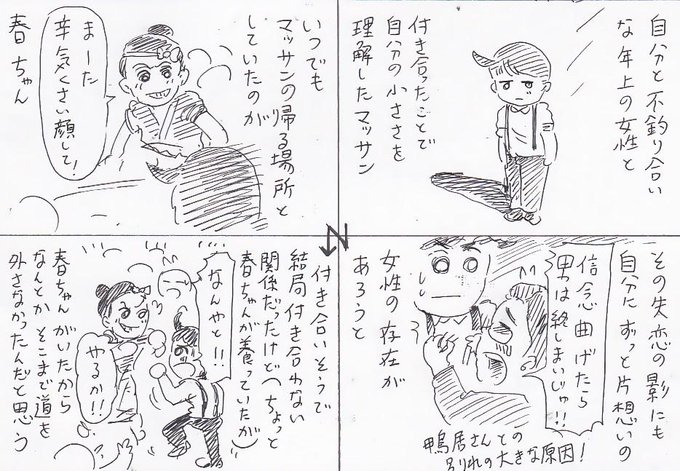 自分と不釣り合い
な年上の女性と
付き合ったことで
自分の小ささを
理解したマッサン
その失恋の影にも
自分にずっと片想いの
女性の存在が
あろうと
信念曲げたら
男は終しまいじゃ!!
鴨居さんとの
別れの大きな原因!
いつでも
マッサンの帰る場所と
していたのが
春ちゃん
まーた
辛気くさい顔して!
N
付き合いそうで
結局付き合わない
関係だったけど(ちょっと
春ちゃんが養っていたが)
なんやと!!
やるか!!
春ちゃんがいたから
なんとかそこまで道を
外さなかったんだと思う